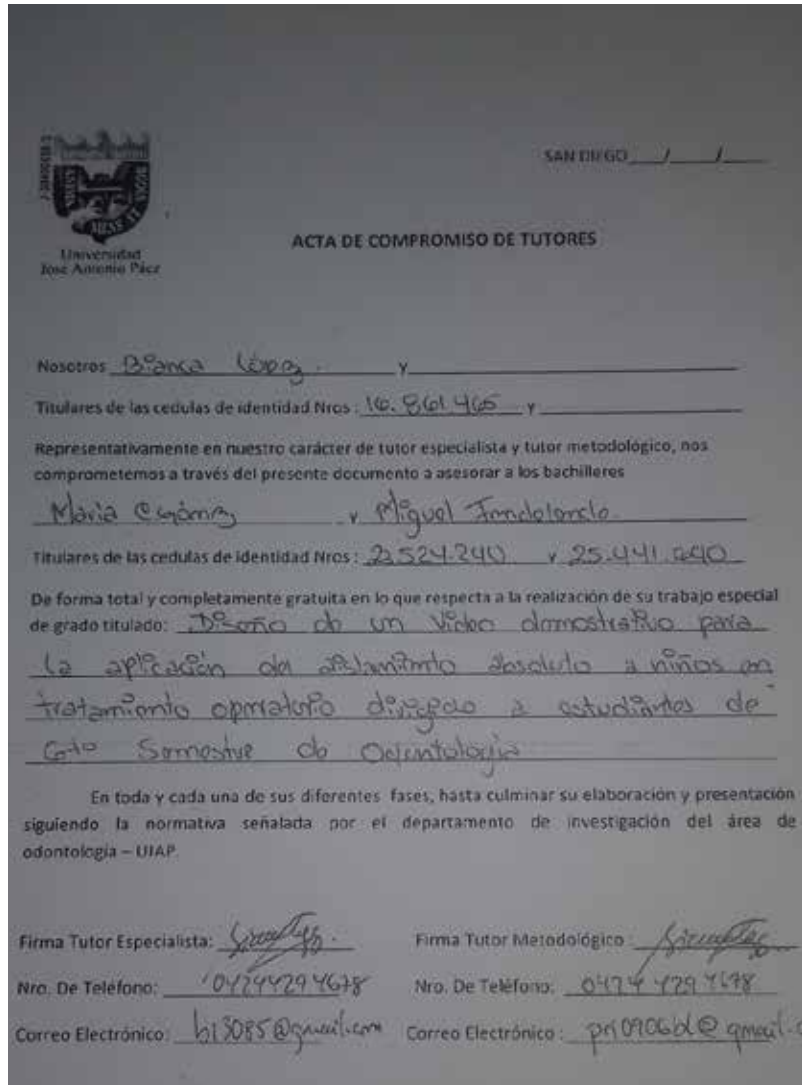 SAN DIEGO ___/___/___
Universidad
José Antonio Páez
ACTA DE COMPROMISO DE TUTORES
Nosotros Bianca López. y
Titulares de las cedulas de identidad Nros : 16.861.465 y
Representativamente en nuestro carácter de tutor especialista y tutor metodológico, nos
comprometemos a través del presente documento a asesorar a los bachilleres
Maria y Miguel
Titulares de las cedulas de identidad Nros : y
De forma total y completamente gratuita en lo que respecta a la realización de su trabajo especial
de grado titulado: Diseño de un Video demostrativo para
la aplicación del aislamiento absoluto a niños en
tratamiento operatorio dirigido a estudiantes de
6to Semestre de Odontología
En toda y cada una de sus diferentes fases, hasta culminar su elaboración y presentación
siguiendo la normativa señalada por el departamento de investigación del área de
odontología – UJAP.
Firma Tutor Especialista: Firma Tutor Metodológico :
Nro. De Teléfono: 04244294678 Nro. De Teléfono: 0424 4294678
Correo Electrónico: Correo Electrónico :